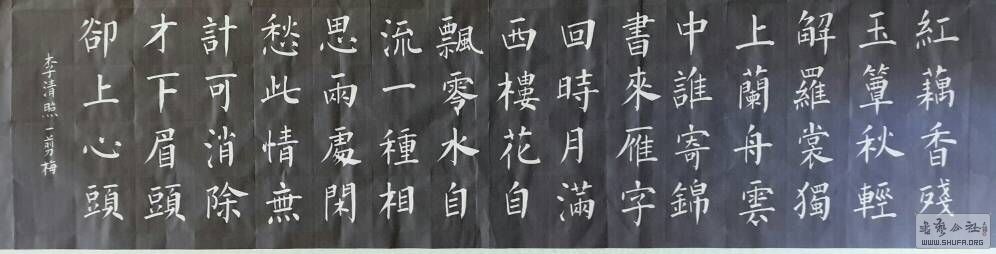 紅藕香殘
玉簟秋輕
解羅裳獨
上蘭舟雲
中誰寄錦
書來雁字
回時月滿
西樓花自
飄零水自
流一種相
思兩處閑
愁此情無
計可消除
才下眉頭
卻上心頭
李清照一剪梅
WWW.SHUFA.ORG